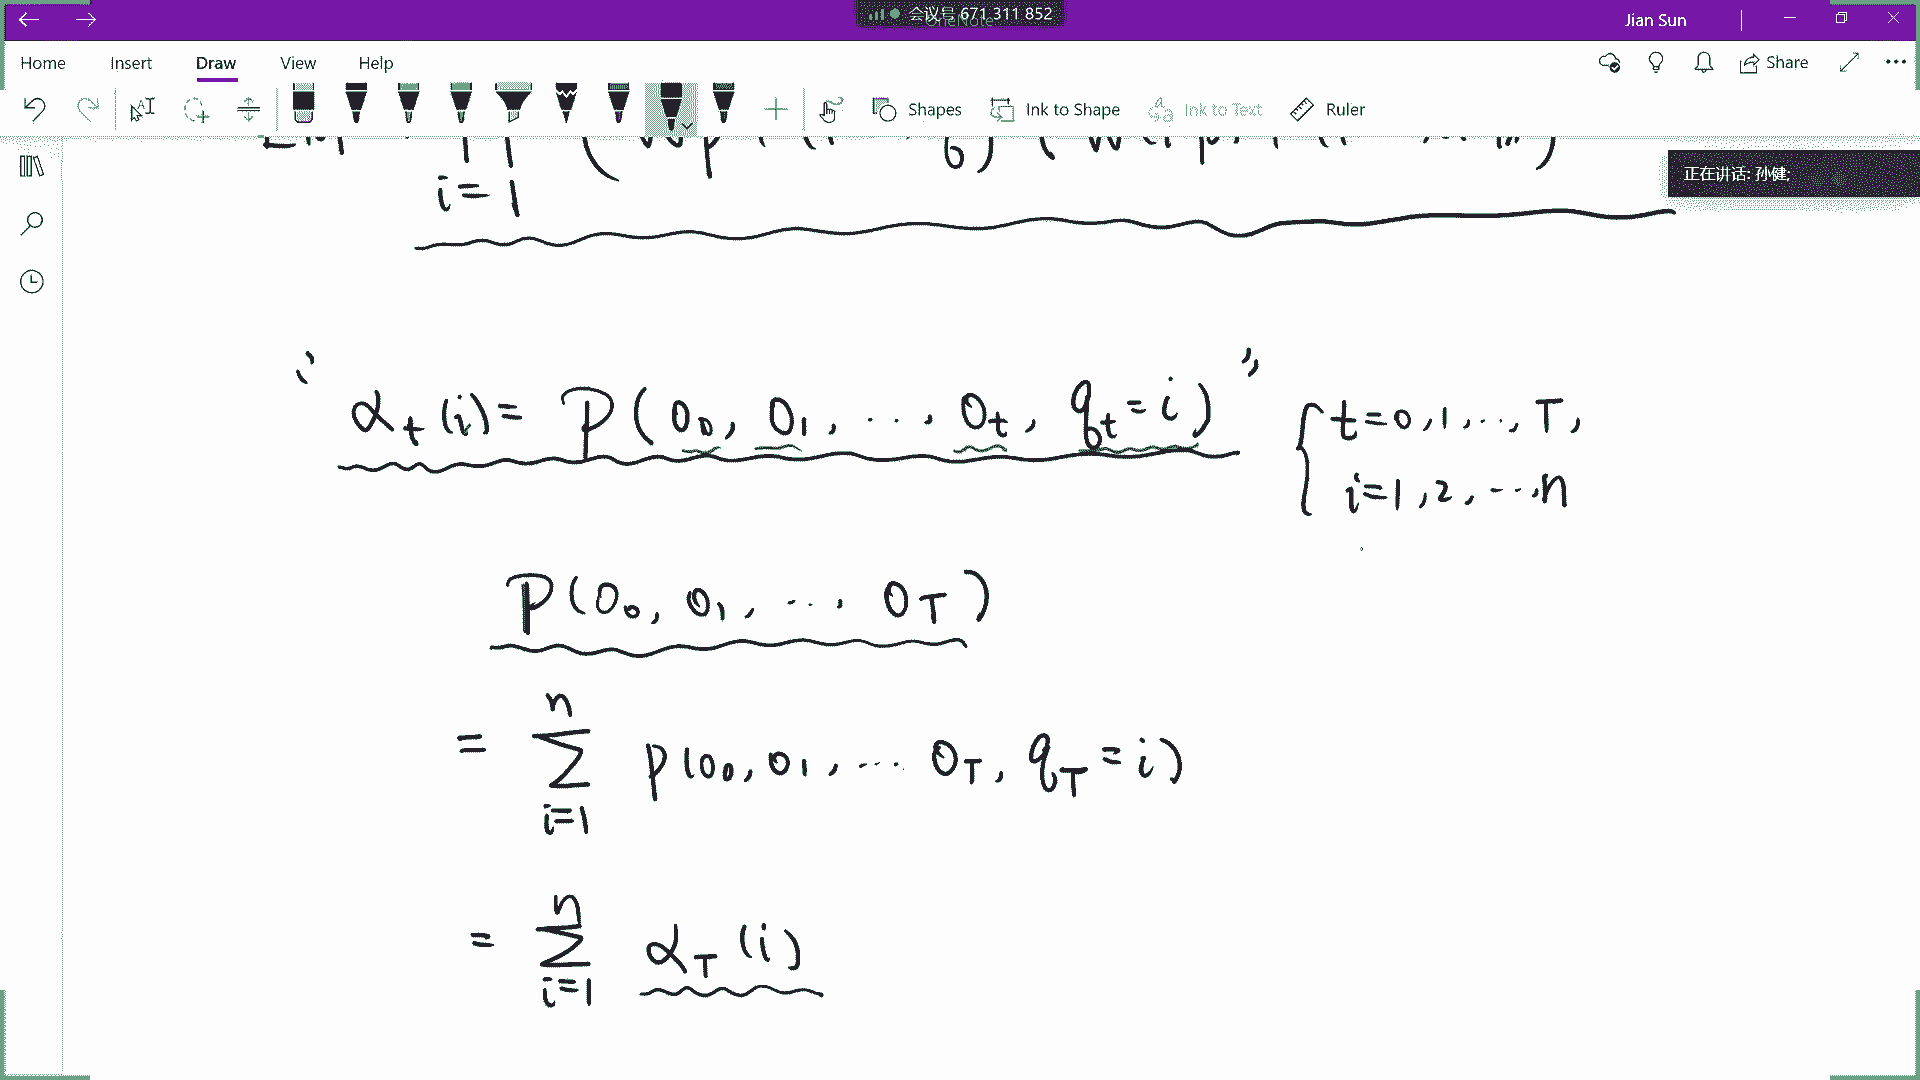 会议号 671 311 852
OneNote
Jian Sun
Home Insert Draw View Help
Share
Shapes Ink to Shape Ink to Text Ruler
正在讲话: 孙健;
i=1
" α_t(i) = P(O_0, O_1, ..., O_t, q_t = i) " { t=0,1,..,T,
i=1,2,...,n
P(O_0, O_1, ..., O_T)
= \sum_{i=1}^{n} P(O_0, O_1, .... O_T, q_T = i)
= \sum_{i=1}^{n} α_T(i)